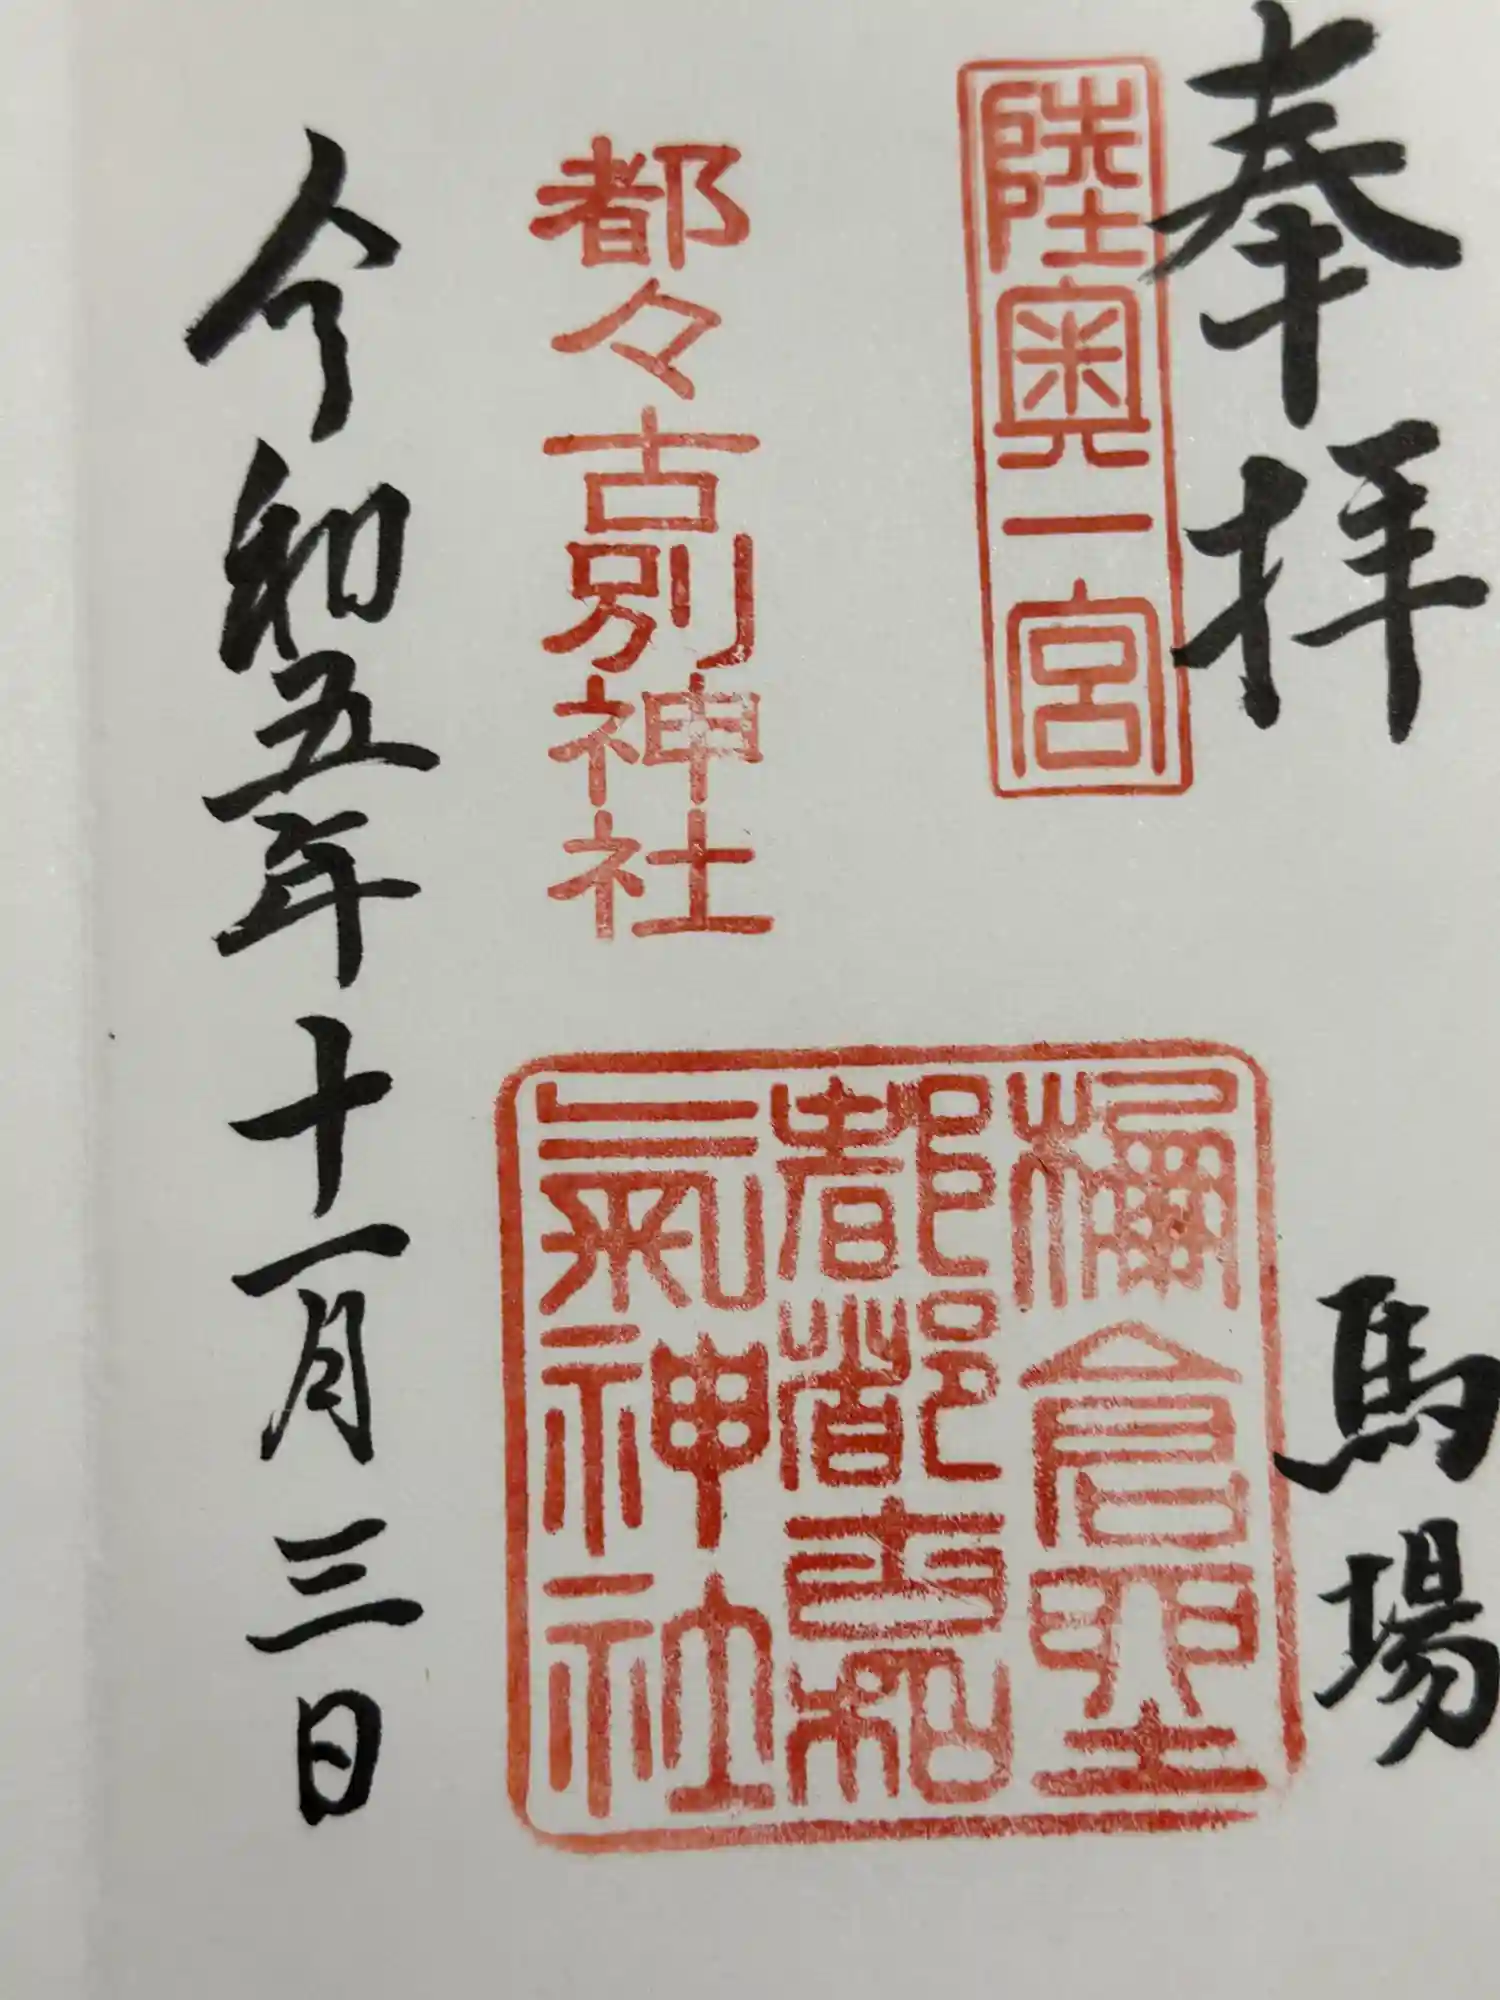 奉拝
馬場
陸奥一宮
倉
都都古和
氣神社
都々古別神社
令和五年十一月三日